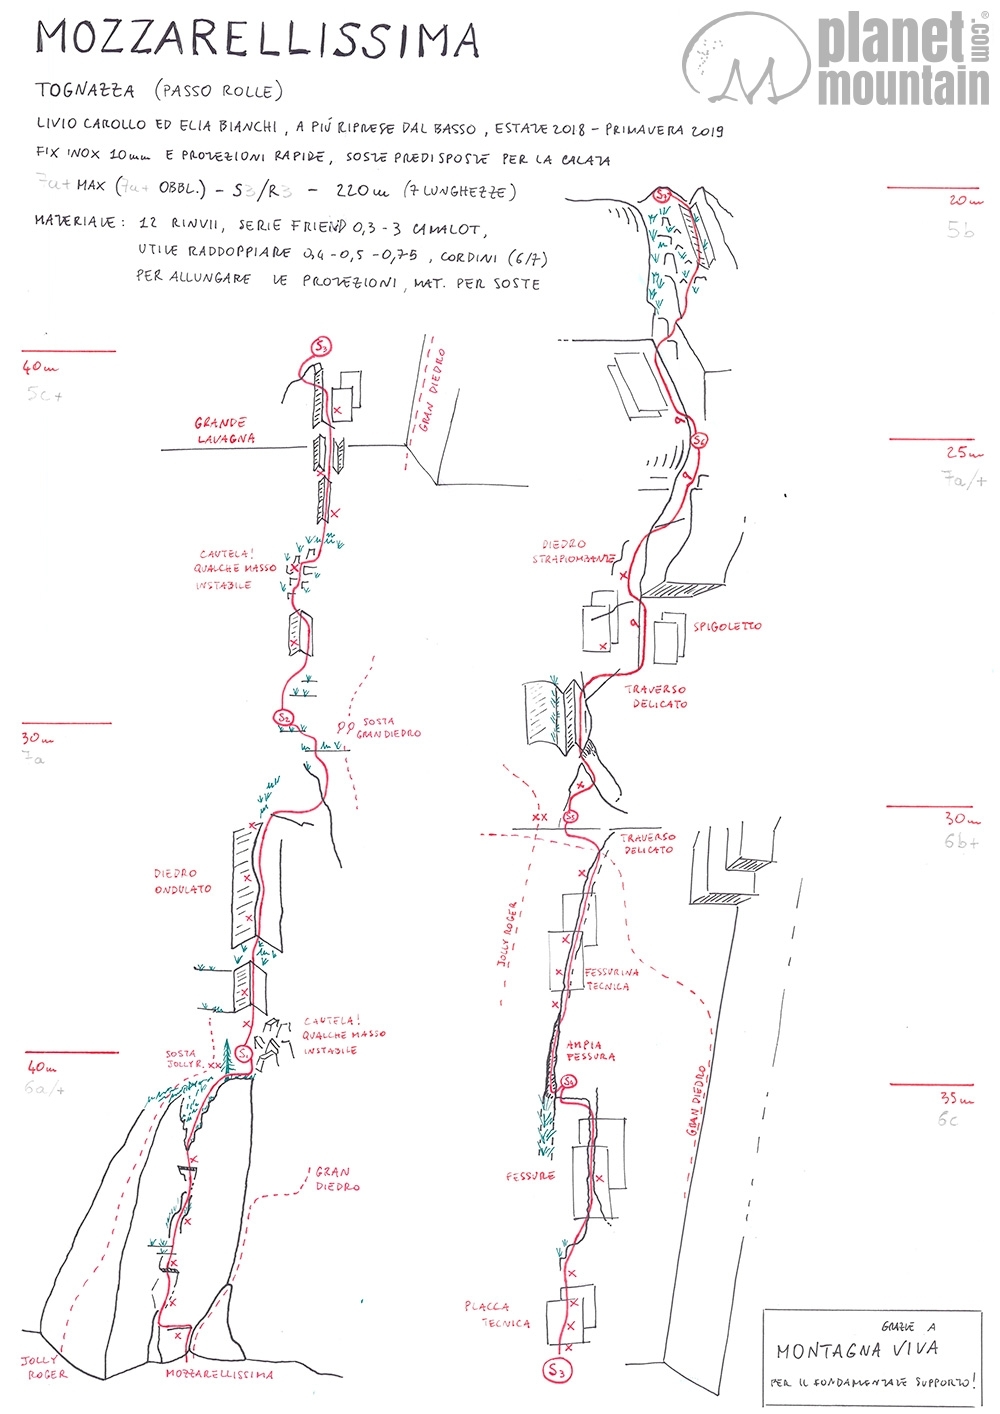 MOZZARELLISSIMA
planet
mountain
.com
®
TOGNAZZA (PASSO ROLLE)
LIVIO CAROLLO ED ELIA BIANCHI, A PIÚ RIPRESE DAL BASSO, ESTATE 2018 - PRIMAVERA 2019
FIX INOX 10mm E PROTEZIONI RAPIDE, SOSTE PREDISPOSTE PER LA CALATA
7a+ MAX (7a+ OBBL.) - S3/R3 - 220m (7 LUNGHEZZE)
MATERIALE: 12 RINVII, SERIE FRIEND 0,3-3 CAMALOT,
UTILE RADDOPPIARE 0,4-0,5-0,75, CORDINI (6/7)
PER ALLUNGARE LE PROTEZIONI, MAT. PER SOSTE
40m
5c+
S3
GRANDE
LAVAGNA
GRAN DIEDRO
CAUTELA!
QUALCHE MASSO
INSTABILE
30m
7a
S2
SOSTA
GRAN DIEDRO
DIEDRO
ONDULATO
CAUTELA!
QUALCHE MASSO
INSTABILE
40m
6a/+
SOSTA
JOLLY R.
S1
GRAN
DIEDRO
JOLLY
ROGER
MOZZARELLISSIMA
S7
20m
5b
S6
25m
7a/+
DIEDRO
STRAPIOMBANTE
SPIGOLETTO
TRAVERSO
DELICATO
S5
30m
6b+
TRAVERSO
DELICATO
JOLLY ROGER
FESSURINA
TECNICA
AMPIA
FESSURA
S4
35m
6c
GRAN DIEDRO
FESSURE
PLACCA
TECNICA
S3
GRAZIE A
MONTAGNA VIVA
PER IL FONDAMENTALE SUPPORTO!